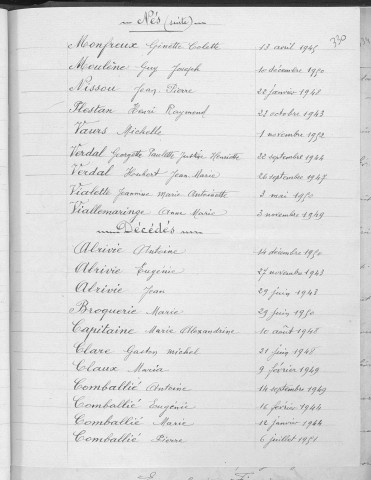 Nés (suite)
330
Monfreux Ginette Colette 13 avril 1945
Moulène Guy Joseph 10 décembre 1950
Nissou Jean Pierre 22 janvier 1948
Plestan Henri Raymond 22 octobre 1943
Vaurs Michelle 1 novembre 1952
Verdal Georgette Paulette Justine Henriette 22 septembre 1944
Verdal Houbert Jean Marie 26 septembre 1947
Vialette Jeannine Marie Antoinette 2 mai 1950
Viallemaringe Anne Marie 2 novembre 1949
Décédés
Abrivie Antoine 14 décembre 1950
Abrivie Eugénie 27 novembre 1948
Abrivie Jean 29 juin 1943
Broquerie Marie 29 juin 1950
Capitaine Marie Alexandrine 10 août 1948
Clare Gaston Michel 21 juin 1948
Claux Maria 9 février 1949
Comballié Antoine 14 septembre 1949
Comballié Eugénie 16 février 1944
Comballié Marie 12 janvier 1944
Comballié Pierre 6 juillet 1951